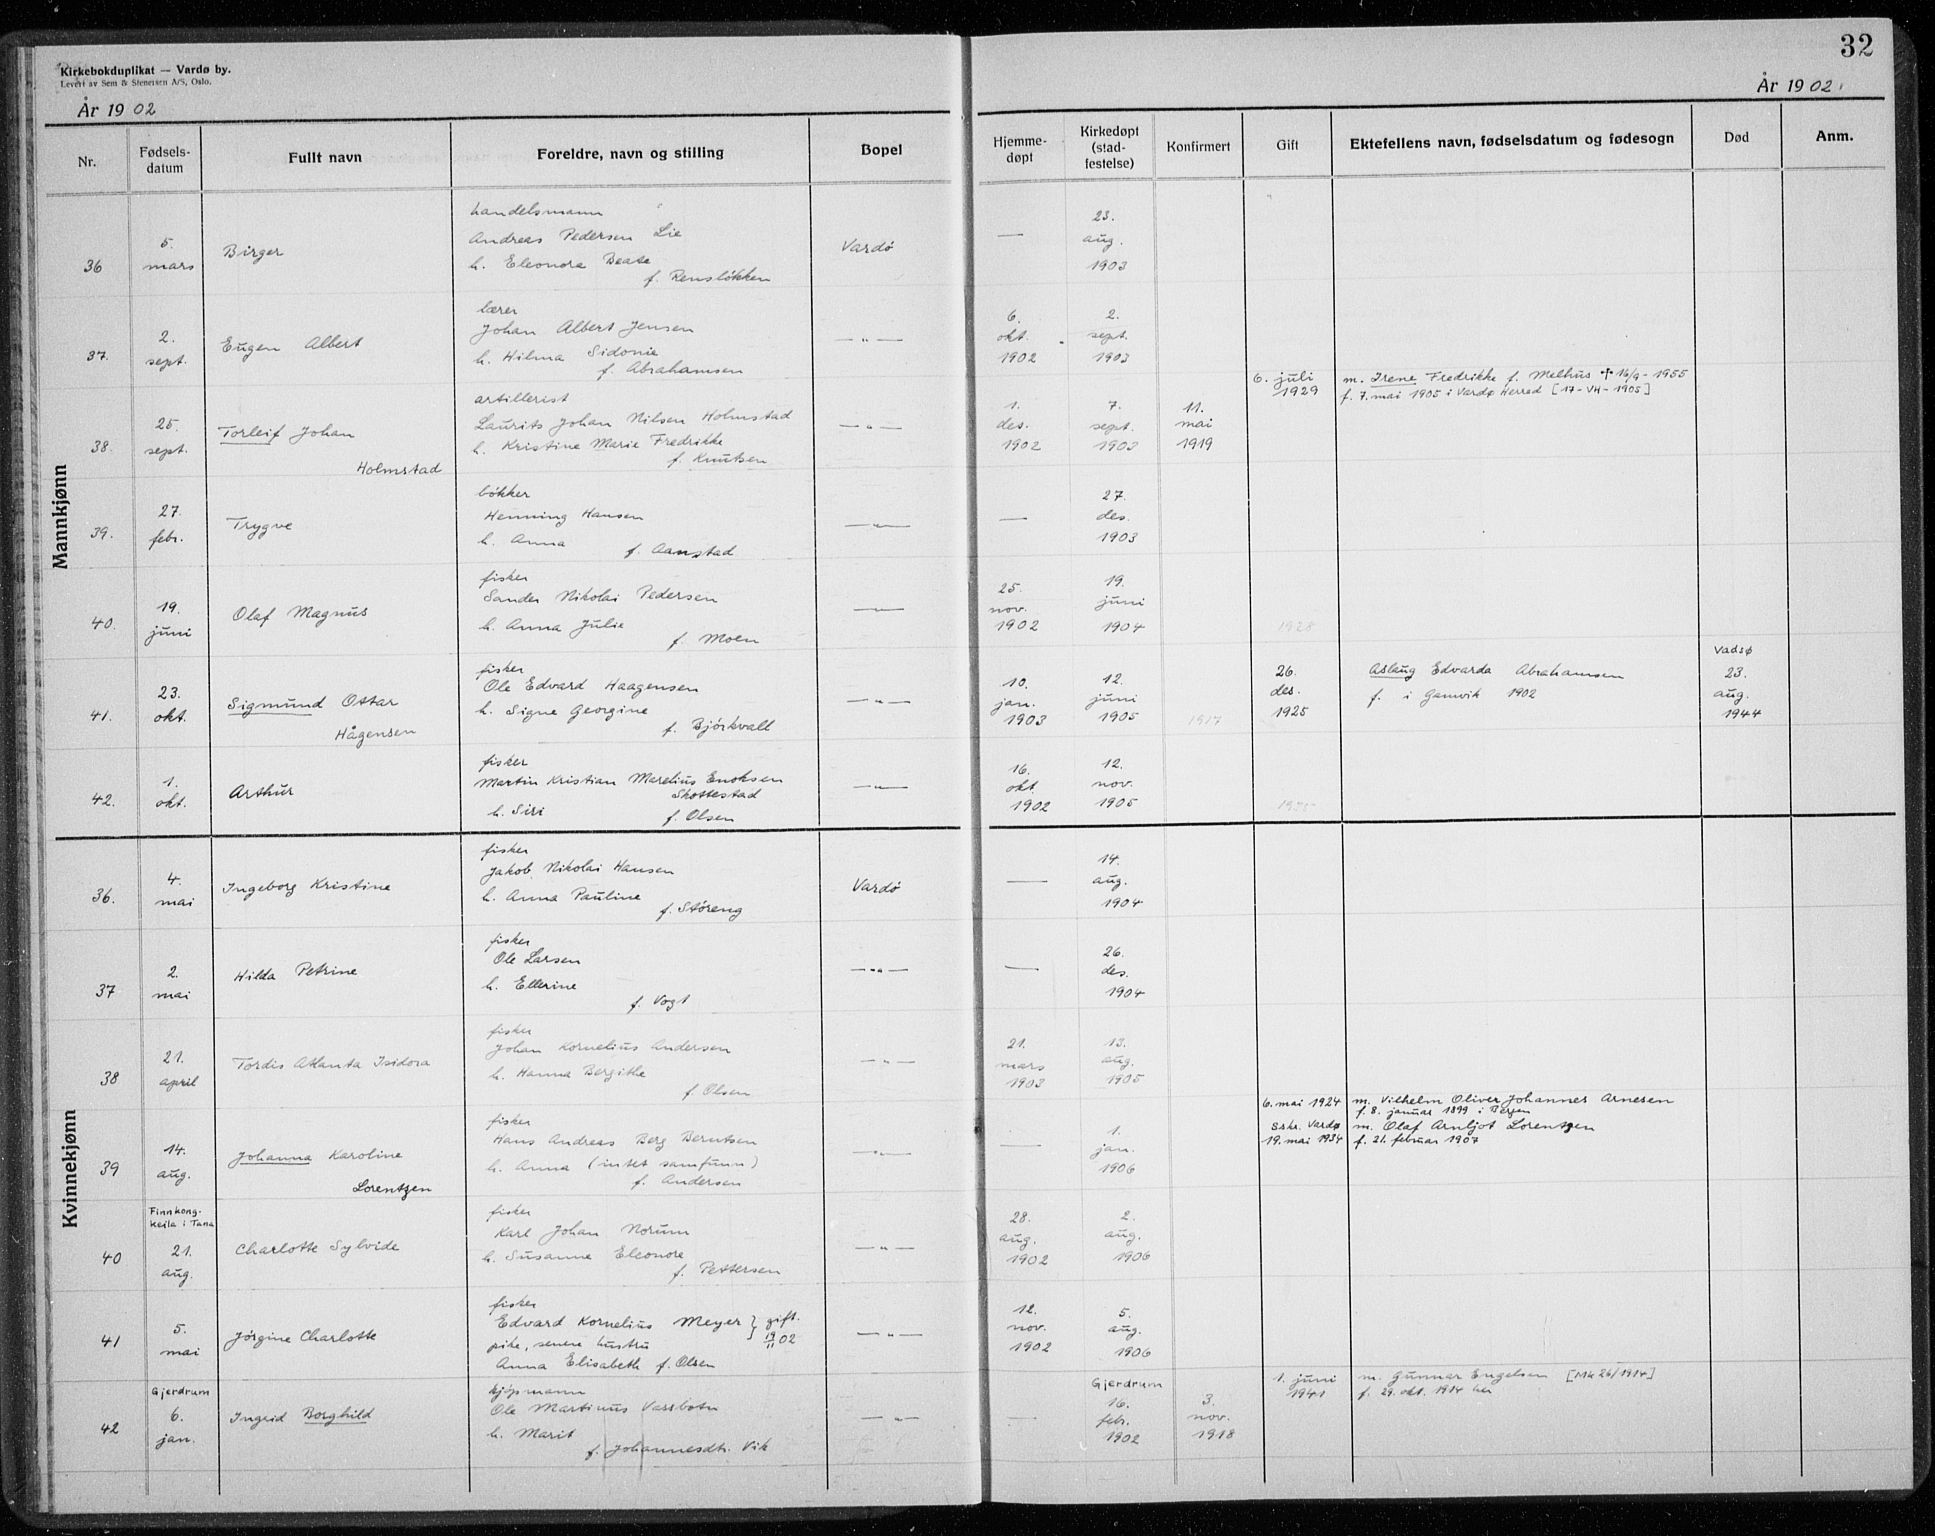 Kirkebokduplikat — Vardø by.
Levert av Sem & Stenersen A/S, Oslo.
32
År 1902
År 1902
Nr. Fødsels-datum Fullt navn Foreldre, navn og stilling Bopel Hjemme-døpt Kirkedøpt (stad-festelse) Konfirmert Gift Ektefellens navn, fødselsdatum og fødesogn Død Anm.
Mannkjønn
36 5. mars Birger
handelsmann
Andreas Pedersen Lie
h. Eleonora Beate
f. Rensløkken
Vardø — 23. aug. 1903
37. 2. sept. Eugen Albert
lærer
Johan Albert Jensen
h. Hilma Sidonie
f. Abrahamsen
—„— 6. okt. 1902 2. sept. 1903
38. 25. sept. Torleif Johan
Holmstad
artillerist
Laurits Johan Nilsen Holmstad
h. Kristine Marie Fredrikke
f. Knutsen
—„— 1. des. 1902 7. sept. 1903 11. mai 1919 6. juli 1929
m. Irene Fredrikke f. Melhus † 16/9-1955
f. 7. mai 1905 i Vardø Herred [17-VH-1905]
39. 27. febr. Trygve
bøkker
Henning Hansen
h. Anna f. Aanstad
—„— — 27. des. 1903
40. 19. juni Olaf Magnus
fisker
Sander Nikolai Pedersen
h. Anna Julie
f. Moen
—„— 25. nov. 1902 19. juni 1904 1928
41. 23. okt. Sigmund Ottar
Hågensen
fisker
Ole Edvard Haagensen
h. Signe Georgine
f. Bjørkvall
—„— 10. jan. 1903 12. juni 1905 1917 26. des. 1925
Aslaug Edvarda Abrahamsen
f. i Gamvik 1902
Vadsø 23. aug. 1944
42. 1. okt. Arthur
fisker
Martin Kristian Marelius Enoksen
Skottestad
h. Siri f. Olsen
—„— 16. okt. 1902 12. nov. 1905
Kvinnekjønn
36. 4. mai Ingeborg Kristine
fisker
Jakob Nikolai Hansen
h. Anna Pauline
f. Støreng
Vardø — 14. aug. 1904
37 2. mai Hilda Petrine
fisker
Ole Larsen
h. Ellerine
f. Vogt
—„— — 26. des. 1904
38 21. april Tordis Atlanta Isidora
fisker
Johan Kornelius Andersen
h. Hanna Bergithe
f. Olsen
—„— 21. mars 1903 13. aug. 1905
39 14. aug. Johanna Karoline
Lorentzen
fisker
Hans Andreas Berg Berntsen
h. Anna (intet samfunn)
f. Andersen
—„— — 1. jan. 1906
6. mai 1924 m. Vilhelm Oliver Johannes Arnesen
f. 8. januar 1899 i Bergen
Sskr. Vardø m. Olaf Arnljot Lorentzen
19. mai 1934 f. 21. februar 1907
40 Finnkong-keila i Tana 21. aug. Charlotte Sylvide
fisker
Karl Johan Norum
h. Susanne Eleonore
f. Pettersen
—„— 28. aug. 1902 2. aug. 1906
41 5. mai Jørgine Charlotte
fisker
Edvard Kornelius Meyer } gift.
pike, senere hustru 19/11 02
Anna Elisabeth f. Olsen
—„— 12. nov. 1902 5. aug. 1906
42 Gjerdrum 6. jan. Ingrid Borghild
kjøpmann
Ole Martinus Varsbotn
h. Marit
f. Johannesdtr. Vik
—„— — Gjerdrum 16. febr. 1902 3. nov. 1918 1. juni 1941
m. Gunnar Engelsen [Mk 26/1914]
f. 29. okt. 1914 her